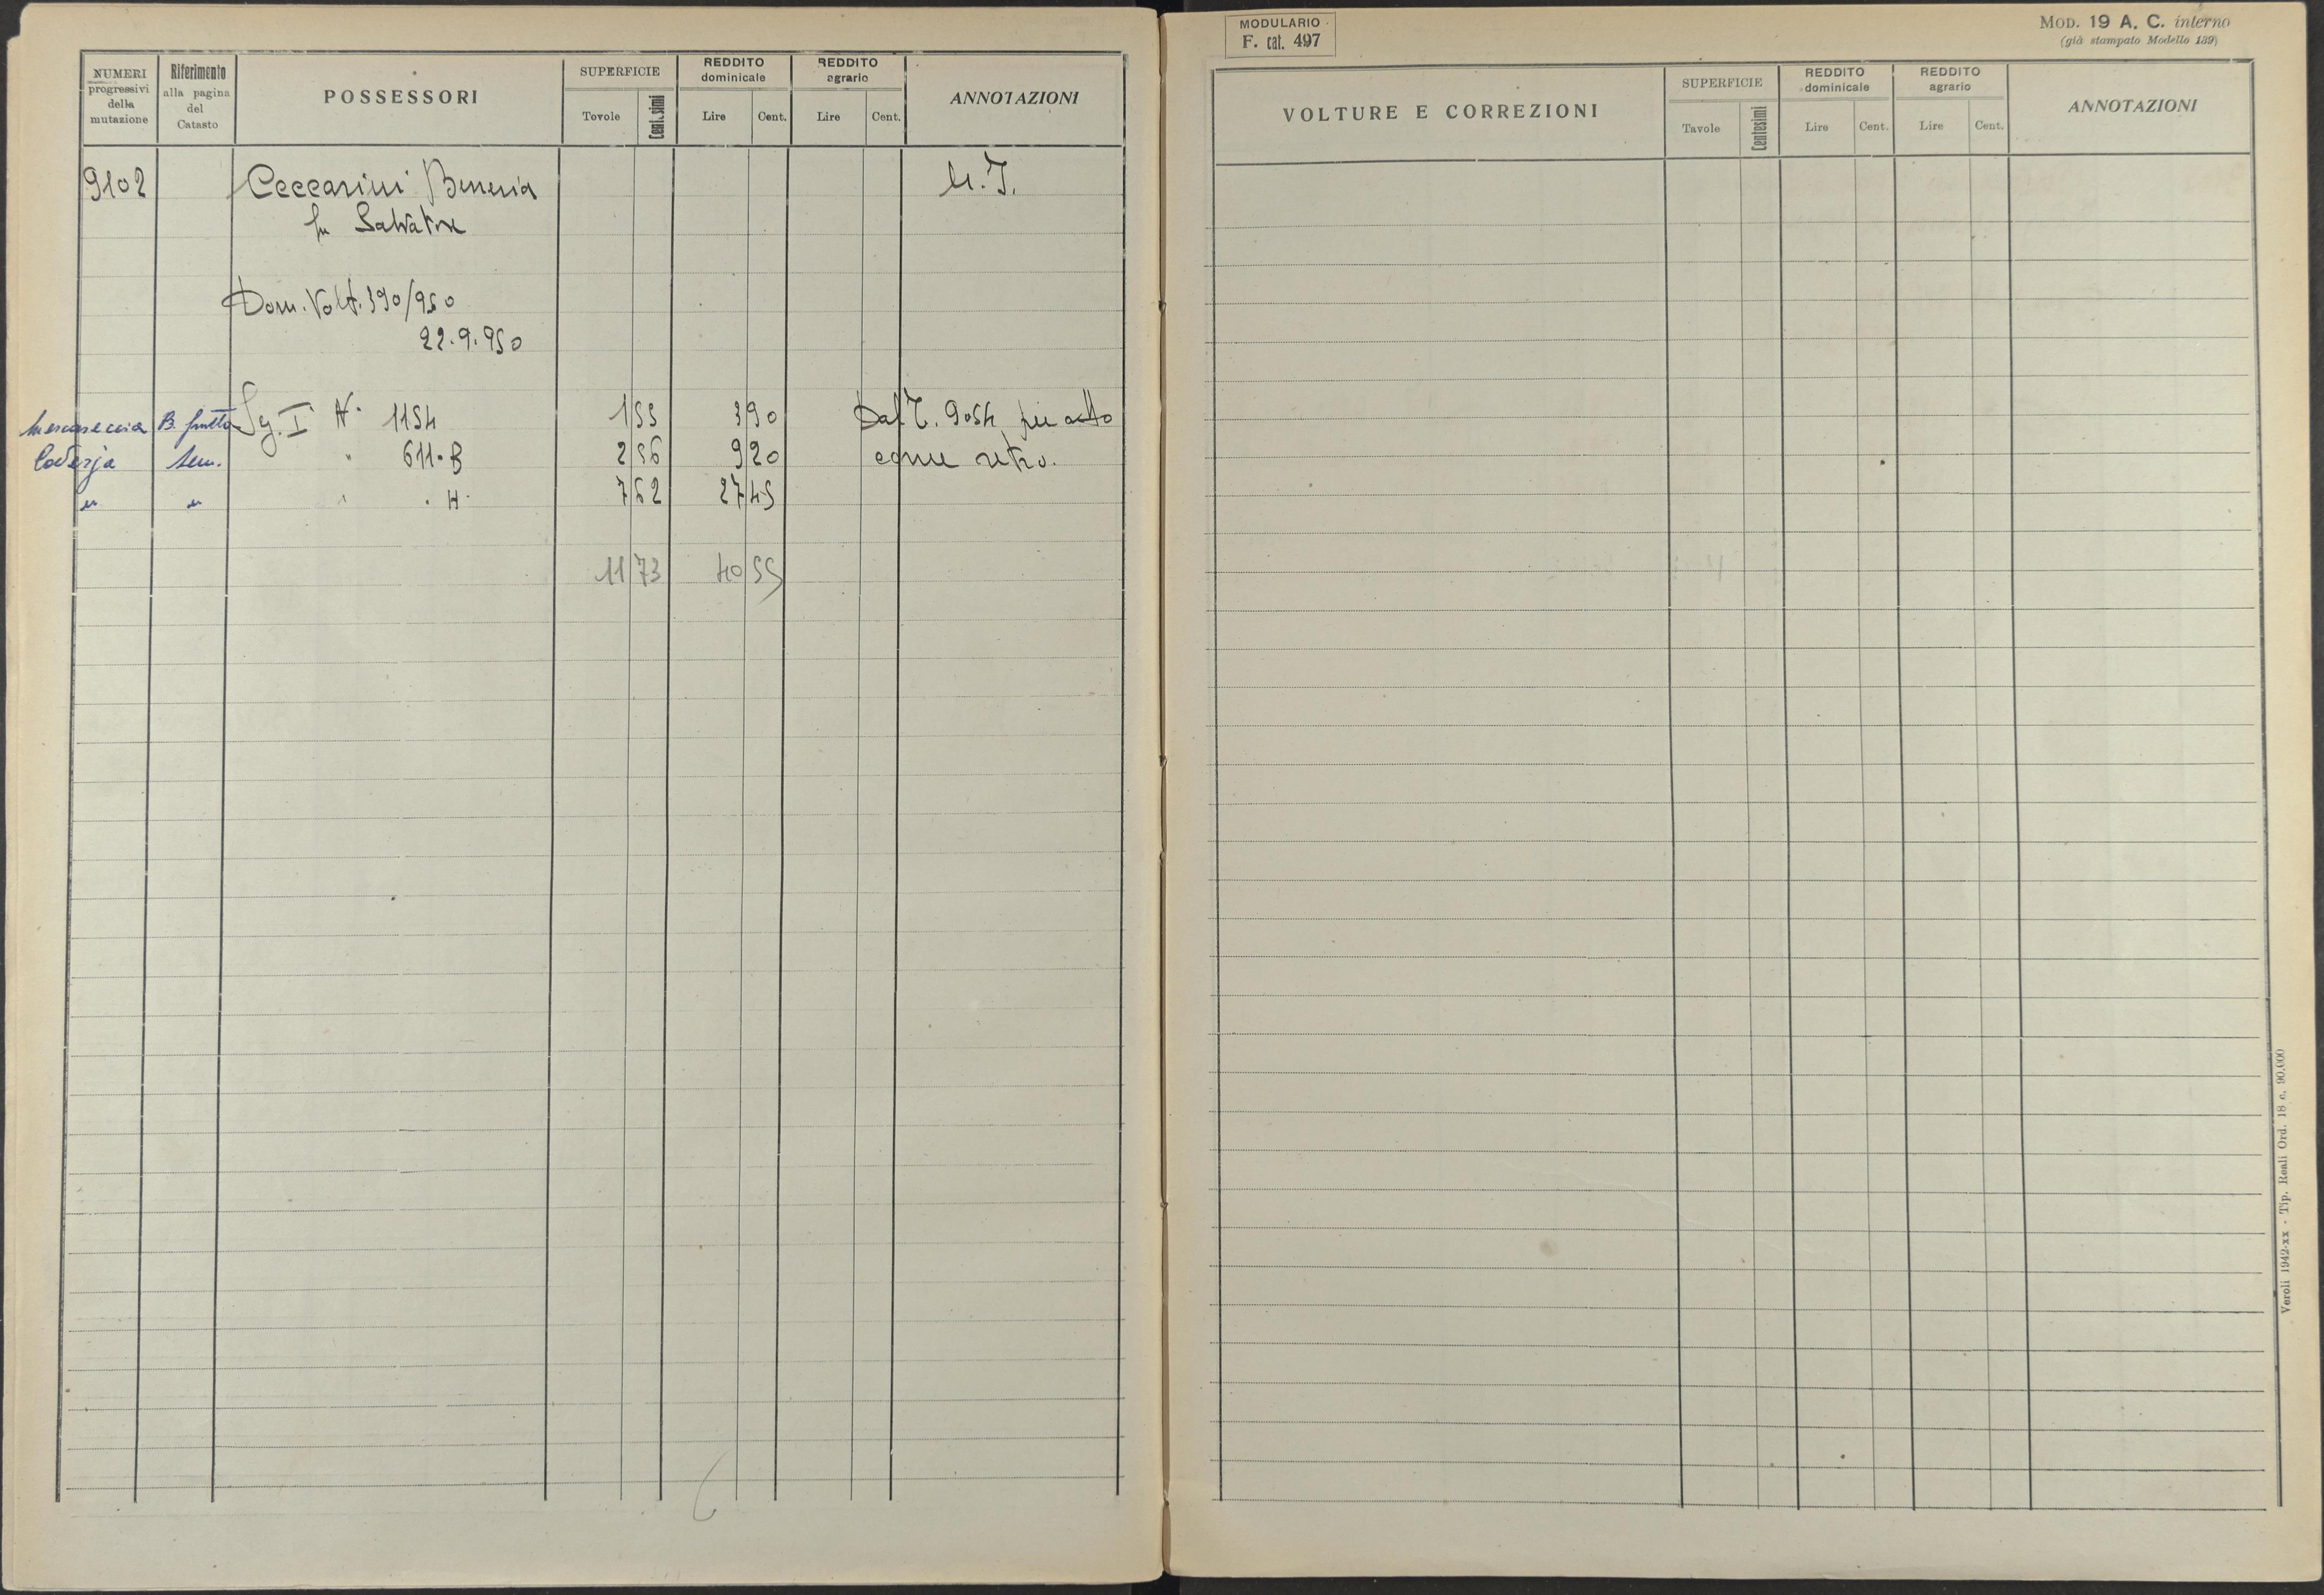 NUMERI progressivi della mutazione
Riferimento alla pagina del Catasto
POSSESSORI
SUPERFICIE
Tavole
Centesimi
REDDITO dominicale
Lire
Cent.
REDDITO agrario
Lire
Cent.
ANNOTAZIONI
9102 Ceccarini U.T.
fu Salvatore
Dom. Volt. 390/950
22.9.950
B. frutto Sez. I N. 1154 1 55 3 90 Dal T. 9054 per atto
Sem. " 611.B 2 56 9 20 come retro.
" " " . H. 7 62 27 45
11 73 40 55
MODULARIO
F. cat. 497
MOD. 19 A. C. interno
(già stampato Modello 139)
VOLTURE E CORREZIONI
SUPERFICIE
Tavole
Centesimi
REDDITO dominicale
Lire
Cent.
REDDITO agrario
Lire
Cent.
ANNOTAZIONI
Veroli 1942-xx - Tip. Reali Ord. 18 c. 90.000